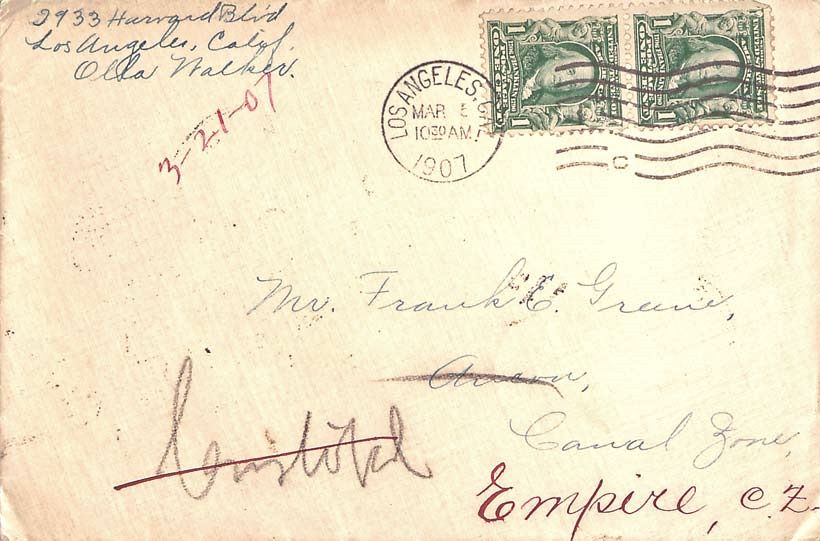 2933 Harvard Blvd
Los Angeles, Calif.
Olla Walker.
3-21-07
LOS ANGELES, CAL.
MAR 5
10 30 AM
1907
C
1
1
1
1
Mr. Frank E. Greene,
Ancon,
Canal Zone,
Cristobal
Empire, C.Z.